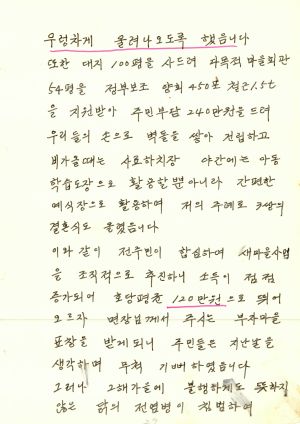 우렁차게 울려나오도록 했읍니다
또한 대지 100평을 사드려 다목적 마을회관
54평을 정부보조 양회 450포 철근 1.5t
을 지원받아 주민부담 240만원을 드려
우리들의 손으로 벽돌을 쌓아 건립하고
비가올때는 사료하치장 야간에는 아동
학습도장으로 활용할뿐아니라 간편한
예식장으로 활용하여 저의 주례로 3쌍의
결혼식도 올렸읍니다
이와 같이 전주민이 합심하여 새마을사업
을 조직적으로 추진하니 소득이 점점
증가되어 호당평균 120만원으로 뛰어
오르자 면장님께서 주시는 부자마을
표창을 받게되니 주민들은 지난날을
생각하며 무척 기뻐하였읍니다
그러나 그해가을에 불행하게도 뜻하지
않은 닭의 전염병이 침범하여